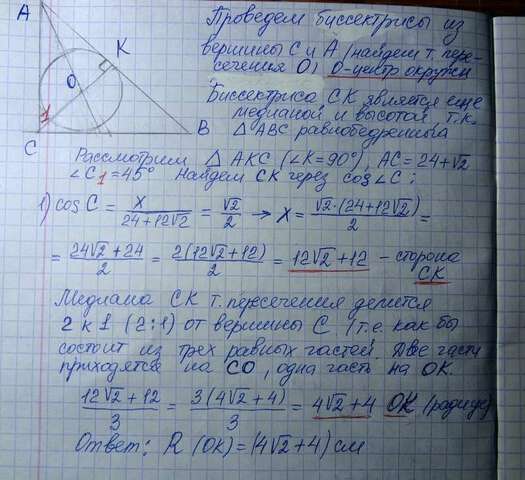 A
K
O
1
C
B
Проведем биссектрисы из
вершины С и А (найдем т. пере-
сечения О), О-центр окружн
Биссектриса СК является еще
медианой и высотой, т.к.
△ АВС равнобедренный
Рассмотрим △ АКС (∠К=90°), АС=24+√2
∠С1=45° Найдем СК через cos∠C:
1) cos C = x / (24+12√2) = √2/2 → x = √2·(24+12√2) / 2 =
= (24√2+24)/2 = 2(12√2+12)/2 = 12√2+12 - сторона
СК
Медиана СК т. пересечения делится
2 к 1 (2:1) от вершины С (т.е. как бы
состоит из трех равных частей. Две части
приходятся на СО, одна часть на ОК.
(12√2+12)/3 = 3(4√2+4)/3 = 4√2+4 ОК (радиус)
Ответ: R (ОК)=(4√2+4) см